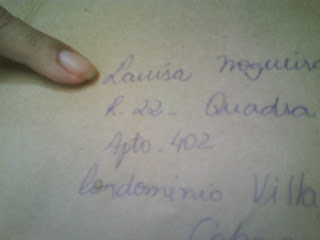 Lauisa Nogueira
R. 22 - Quadra
Apto. 402
Condominio Villa